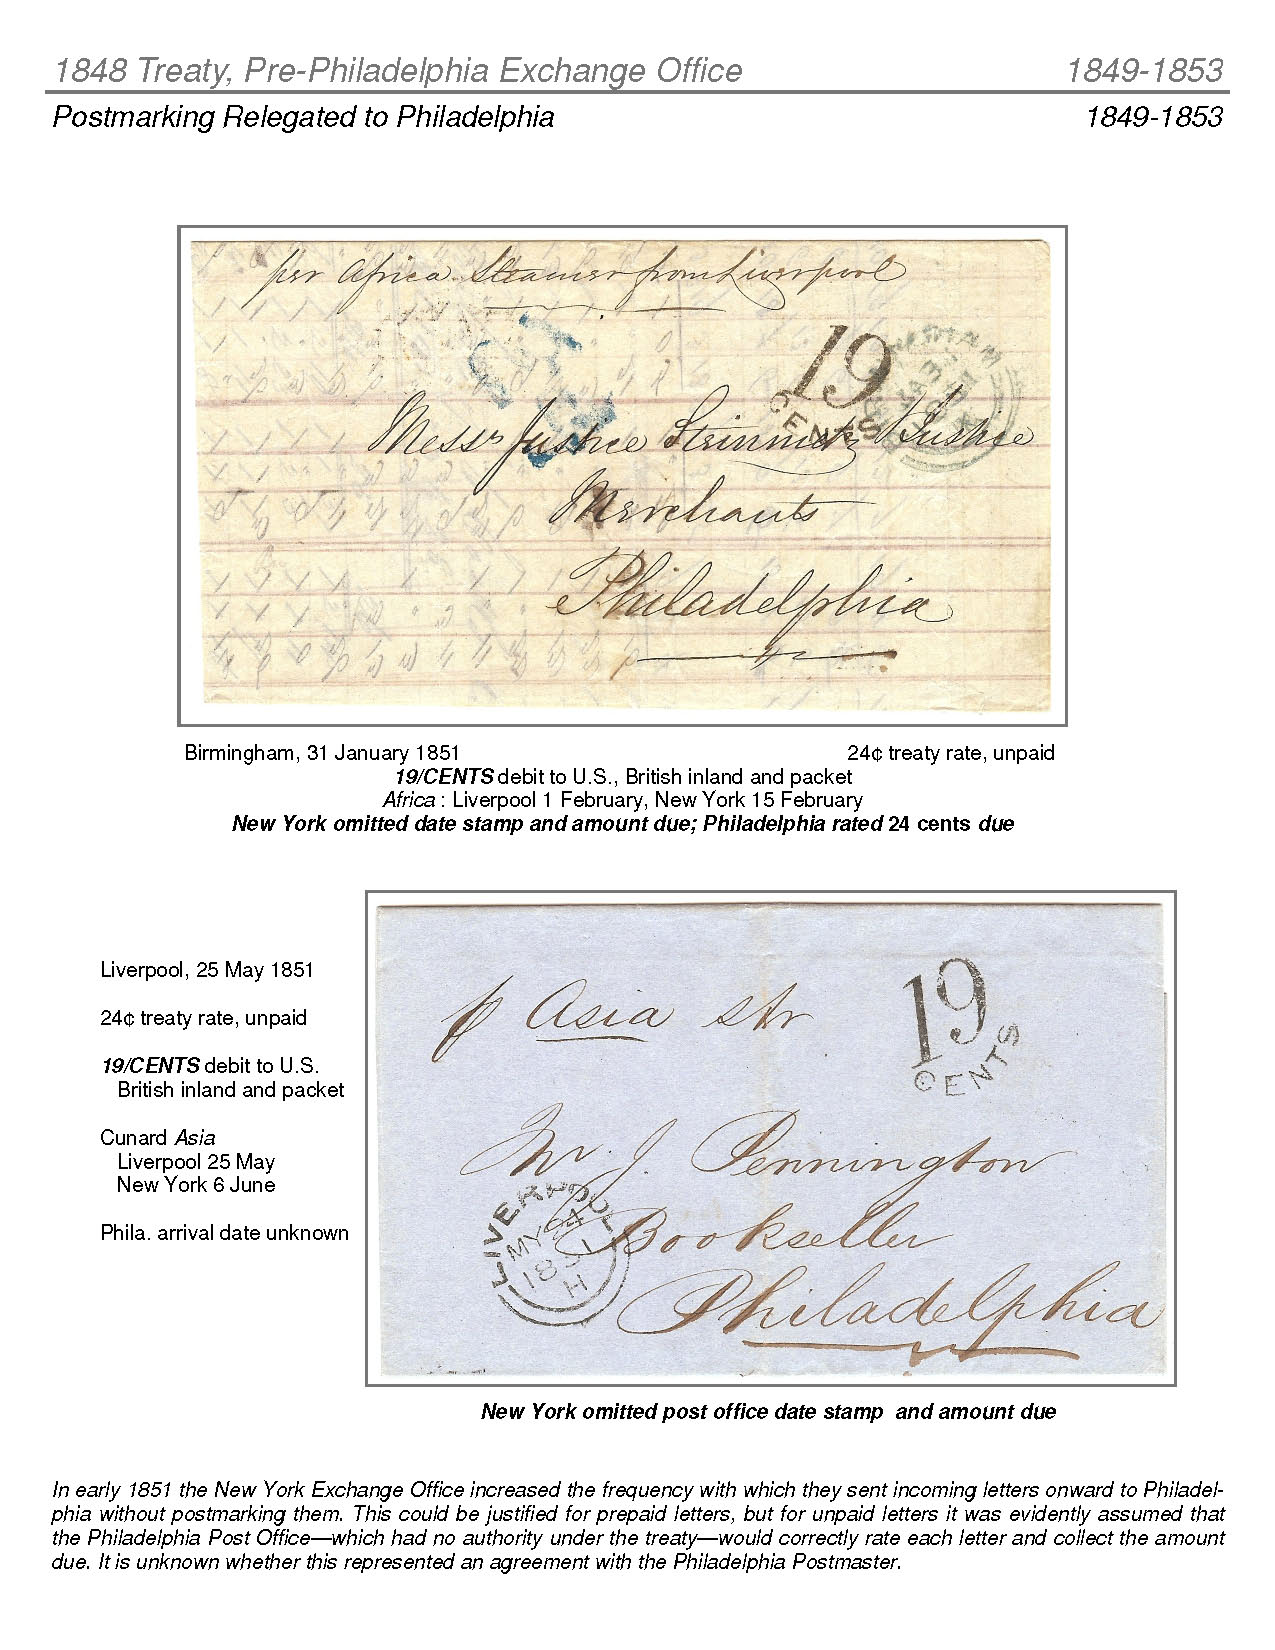 1848 Treaty, Pre-Philadelphia Exchange Office 1849-1853
Postmarking Relegated to Philadelphia 1849-1853
per Africa Steamer from Liverpool
19
CENTS
Messrs Justice Steinmetz & Justice
Merchants
Philadelphia
Birmingham, 31 January 1851 24¢ treaty rate, unpaid
19/CENTS debit to U.S., British inland and packet
Africa : Liverpool 1 February, New York 15 February
New York omitted date stamp and amount due; Philadelphia rated 24 cents due
Liverpool, 25 May 1851
24¢ treaty rate, unpaid
19/CENTS debit to U.S.
British inland and packet
Cunard Asia
Liverpool 25 May
New York 6 June
Phila. arrival date unknown
p Asia str
19
CENTS
Mr. J. Pennington
Bookseller
Philadelphia
LIVERPOOL
MY 24
1851
H
New York omitted post office date stamp and amount due
In early 1851 the New York Exchange Office increased the frequency with which they sent incoming letters onward to Philadel-
phia without postmarking them. This could be justified for prepaid letters, but for unpaid letters it was evidently assumed that
the Philadelphia Post Office—which had no authority under the treaty—would correctly rate each letter and collect the amount
due. It is unknown whether this represented an agreement with the Philadelphia Postmaster.